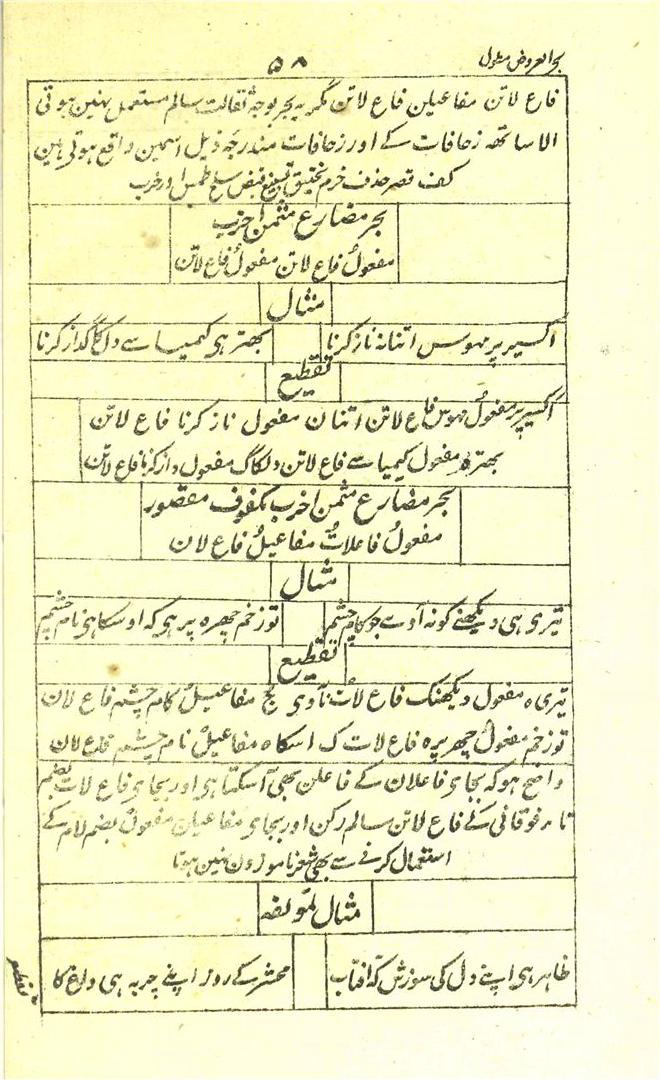 بحر العروض مطول
۵۸
فاع لاتن مفاعیلن فاع لاتن مگر یہ بحر بوجہ ثقالت سالم مستعمل نہین ہوتی
الا ساتھ زحافات کے اور زحافات مندرجہ ذیل اسمین واقع ہوتی ہین
کف قصر حذف خرم تخنیق تسبیغ قبض سلخ طمس اور خرب
بحر مضارع مثمن اخرب
مفعولُ فاع لاتن مفعولُ فاع لاتن
مثال
اکسیر پر مہوس اتنا نہ ناز کرنا بہتر ہی کیمیا سے دل کا گداز کرنا
تقطیع
اکسیر پر مفعولُ مہوس فاع لاتن اتنان مفعول ناز کرنا فاع لاتن
بہتر ہ مفعول کیمیا سے فاع لاتن دلکاگ مفعول داز کرنا فاع لاتن
بحر مضارع مثمن اخرب مکفوف مقصور
مفعولُ فاعلاتُ مفاعیلُ فاع لان
مثال
تیری ہی دیکھنے کو نہ آوے جو کام چشم تو زخم چہرہ پر ہی کہ اوسکا ہی نام چشم
تقطیع
تیری ہ مفعول دیکھنک فاع لاتُ نآوی ج مفاعیلُ کام چشم فاع لان
تو زخم مفعولُ چہر پرہ فاع لات ک اسکاہ مفاعیلُ نام چشم فاع لان
واضح ہو کہ بجای فاعلان کے فاعلن بھی آسکتا ہی اور بجای فاع لات بضم
تاء فوقانی کے فاع لاتن سالم رکن اور بجای مفاعیلن مفعولُ بضم لام کے
استعمال کرنے سے بھی شعر ناموزون نہین ہوتا
مثال لمؤلفہ
ظاہر ہی اپنے دل کی سوزش کہ آفتاب محشر کے روز اپنے چربہ ہی داغ کا
تقطیع